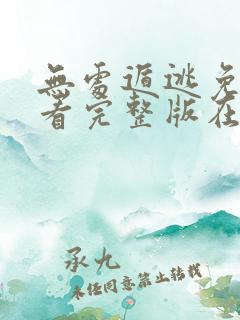 無處遁逃免
看完整版在
承九
未经同意禁止转载